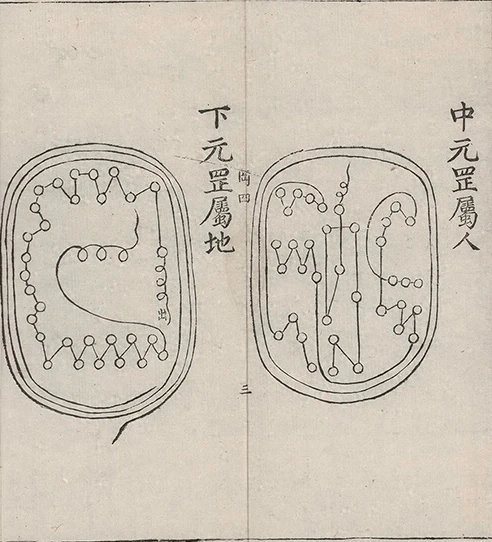 中元罡屬人
罡四
三
下元罡屬地
出